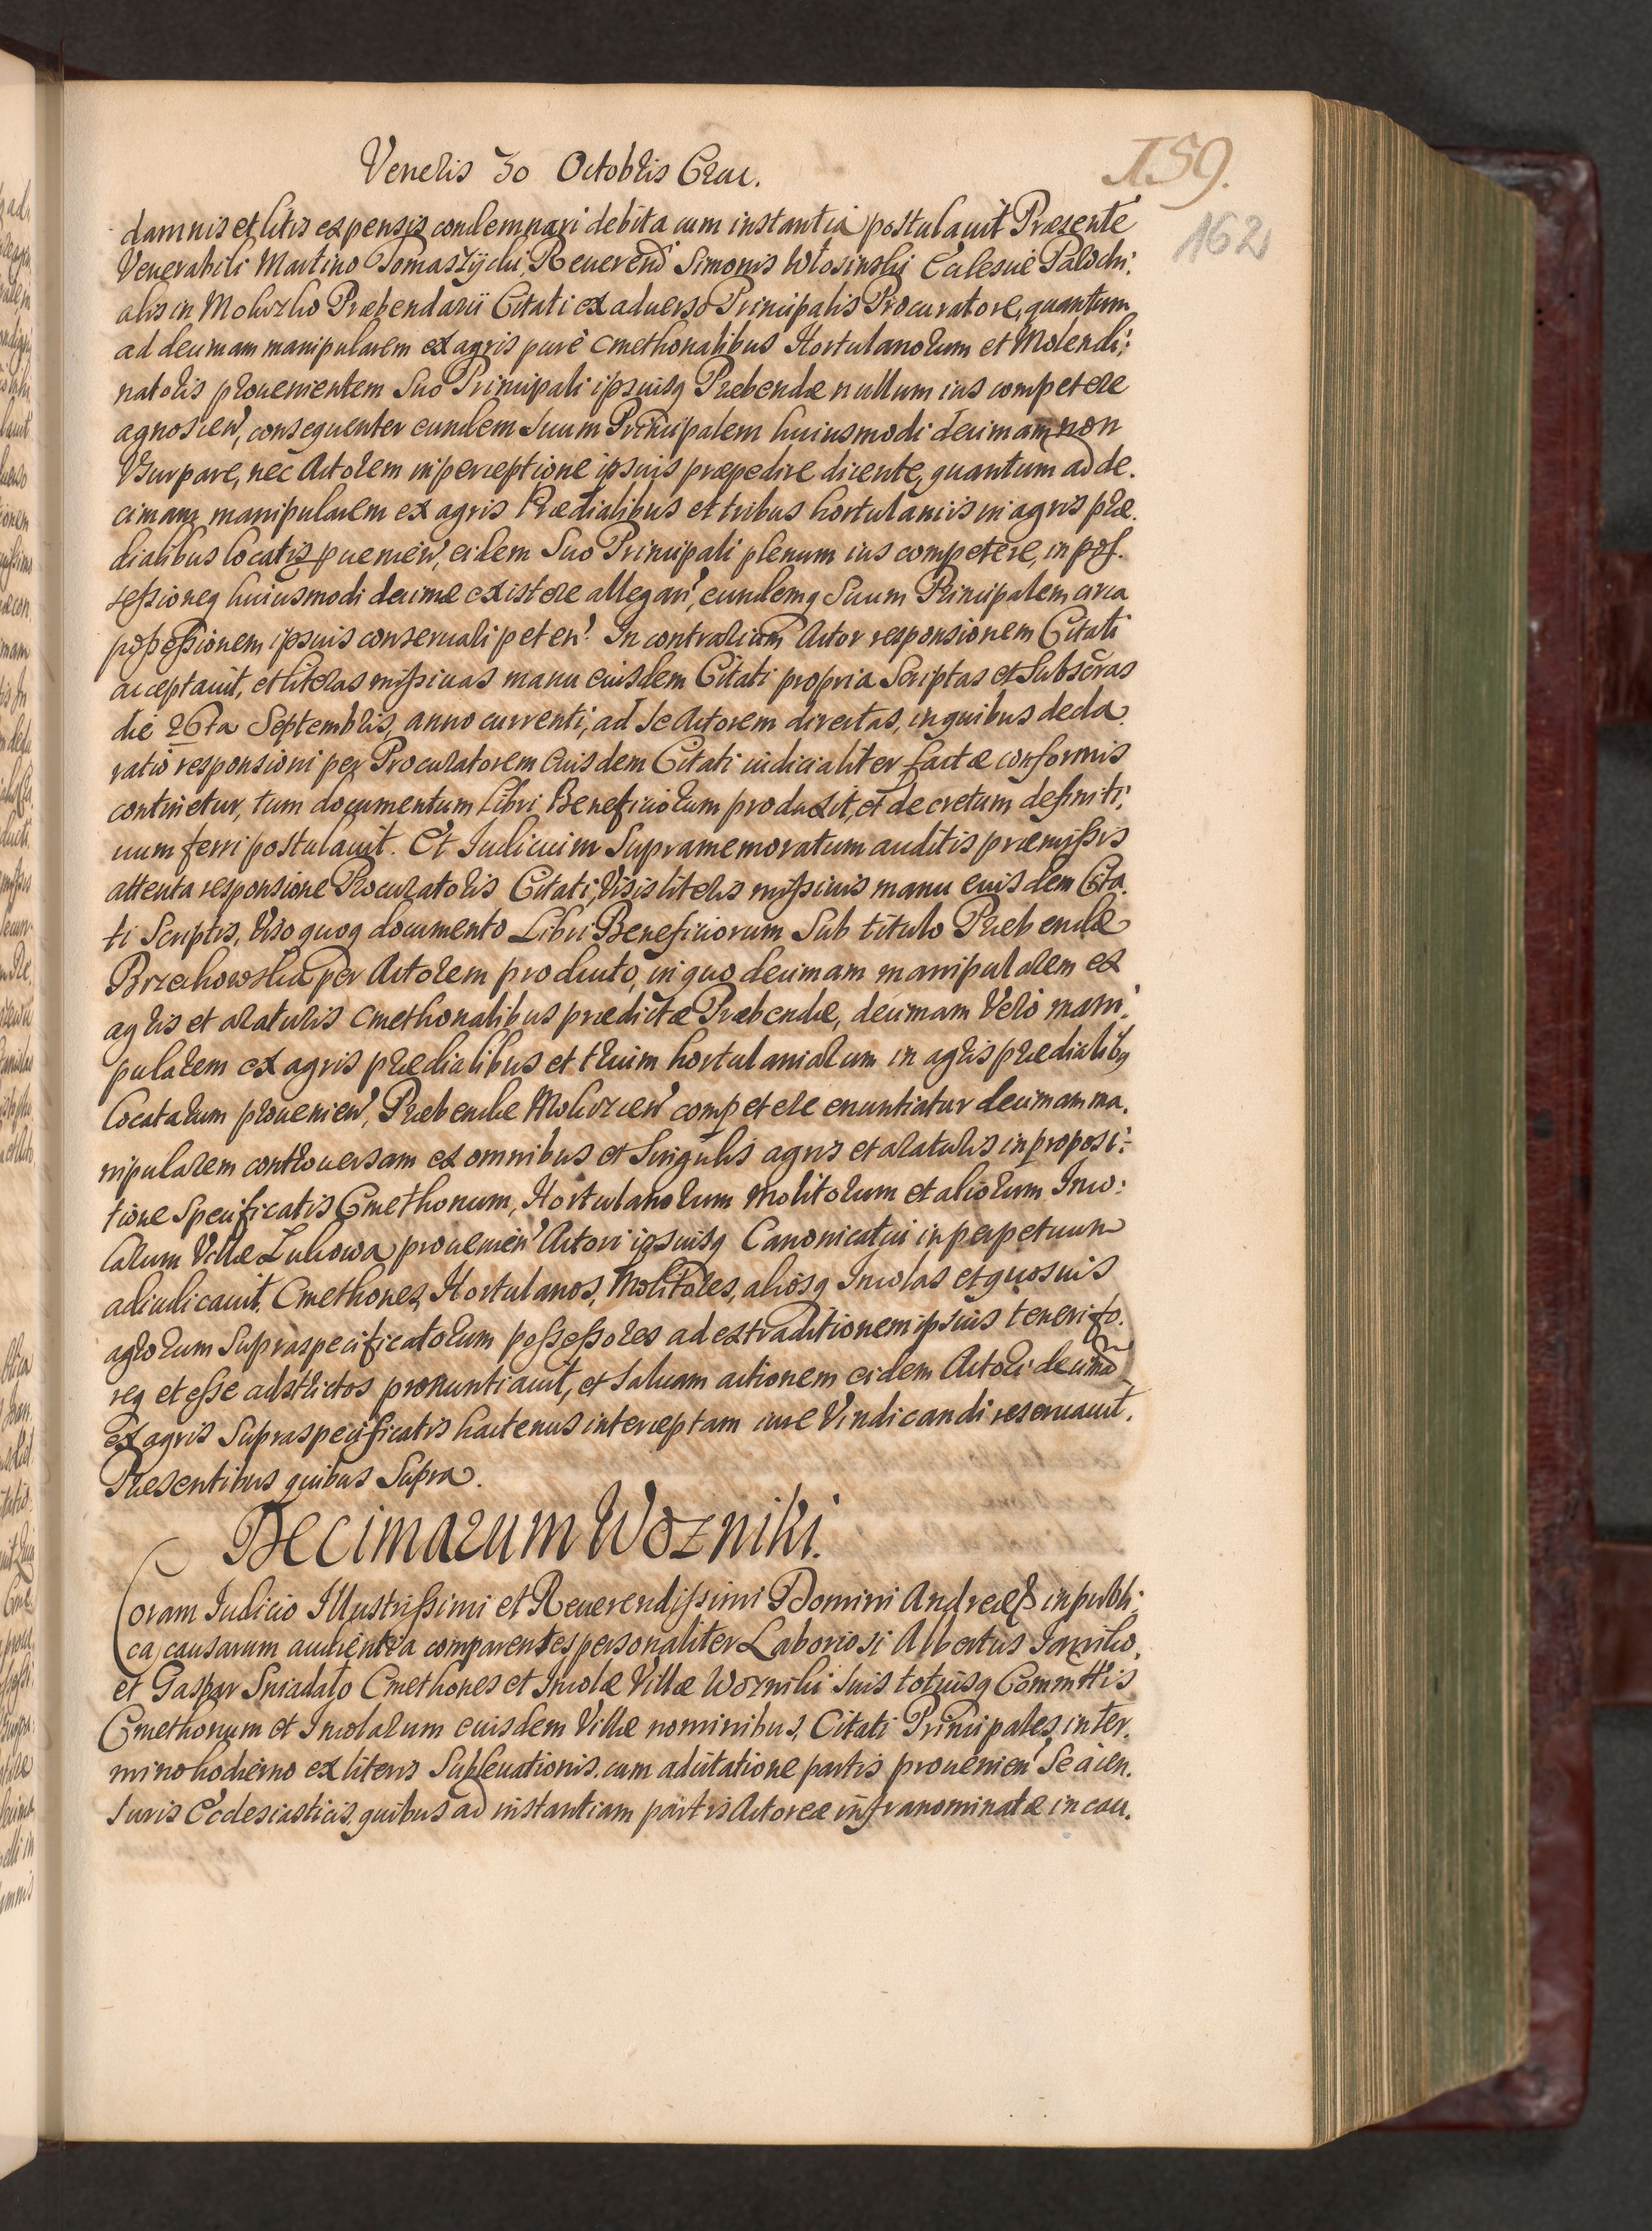 Veneris 30 Octobris Crac.
159.
162
damnis et litis expensis condemnari debita cum instantia postulauit Præsente
Venerabili Martino Tomaszÿcki, Reuerend Simonis Włosinski Ecclesiæ Parochi:
alis in Mokrzko Præbendarii Citati ex aduerso Principalis Procuratore, quantum
ad decimam manipularem ex agris purè Cmethonalibus Hortulanorum et Molendi:
natoris prouenientem Suo Principali ipsiusq Præbendæ nullum ius competere
agnoscen, consequenter eundem Suum Principalem huiusmodi decimam non
Vsurpare, nec Actorem in perceptione ipsius præpedire dicente, quantum ad de.
cimam manipularem ex agris Prædialibus et tribus hortulaniis in agris præ.
dialibus locatis puenien, eidem Suo Principali plenum ius competere, in pos.
sessioneq huiusmodi decimæ existere allegan, eundemq Suum Principalem circa
possessionem ipsius conseruari peten. In contrarium Actor responsionem Citati
acceptauit, et literas missiuas manu eiusdem Citati propria Scriptas et Subscras
die 26ta Septembris, anno currenti, ad Se Actorem directas, in quibus decla.
ratio responsioni per Procuratorem Eiusdem Citati iudicialiter factæ conformis
continetur, tum documentum Libri Beneficiorum produxit, et decretum definiti:
uum ferri postulauit. Et Iudicium Supramemoratum auditis præmissis
attenta responsione Procuratoris Citati, Visis literis missiuis manu eiusdem Cita.
ti Scriptis, Viso quoq documento Libri Beneficiorum Sub titulo Præbendæ
Brzechowska per Actorem producto, in quo decimam manipularem ex
agris et araturis Cmethonalibus prædictæ Præbendæ, decimam Verò mani:
pularem ex agris prædialibus et trium hortulaniarum in agris prædialibq
locatarum prouenien, Præbendæ Mokrzcen competere enuntiatur decimam ma.
nipularem controuersam ex omnibus et Singulis agris et araturis in proposi:
tione Specificatis Cmethonum, Hortulanorum Molitorum et aliorum Inco:
larum Villæ Lukowa prouenien Actori ipsiusq Canonicatui in perpetuum
adiudicauit, Cmethones, Hortulanos, Molitores, aliosq Incolas et quosuis
agrorum Supraspecificatorum possessores ad extraditionem ipsius teneri fo.
req et esse adstrictos pronuntiauit, et Saluam actionem eidem Actori decimã
ex agris Supraspecificatis hactenus interceptam iure Vindicandi reseruauit.
Præsentibus quibus Supra.
Decimarum Wozniki.
Coram Iudicio Illustrissimi et Reuerendissimi Domini Andreæ & in publi:
ca causarum audientia comparentes personaliter Laboriosi Albertus Jarzilko,
et Gaspar Sniadało Cmethones et Incolæ Villæ Wozniki Suis totiusq Commttis
Cmethonum et Incolarum eiusdem Villæ nominibus, Citati Principales, in ter.
mino hodierno ex literis Subleuationis cum adcitatione partis prouenien Se à cen.
Suris Ecclesiasticis, quibus ad instantiam partis Actoreæ infranominatæ in cau.